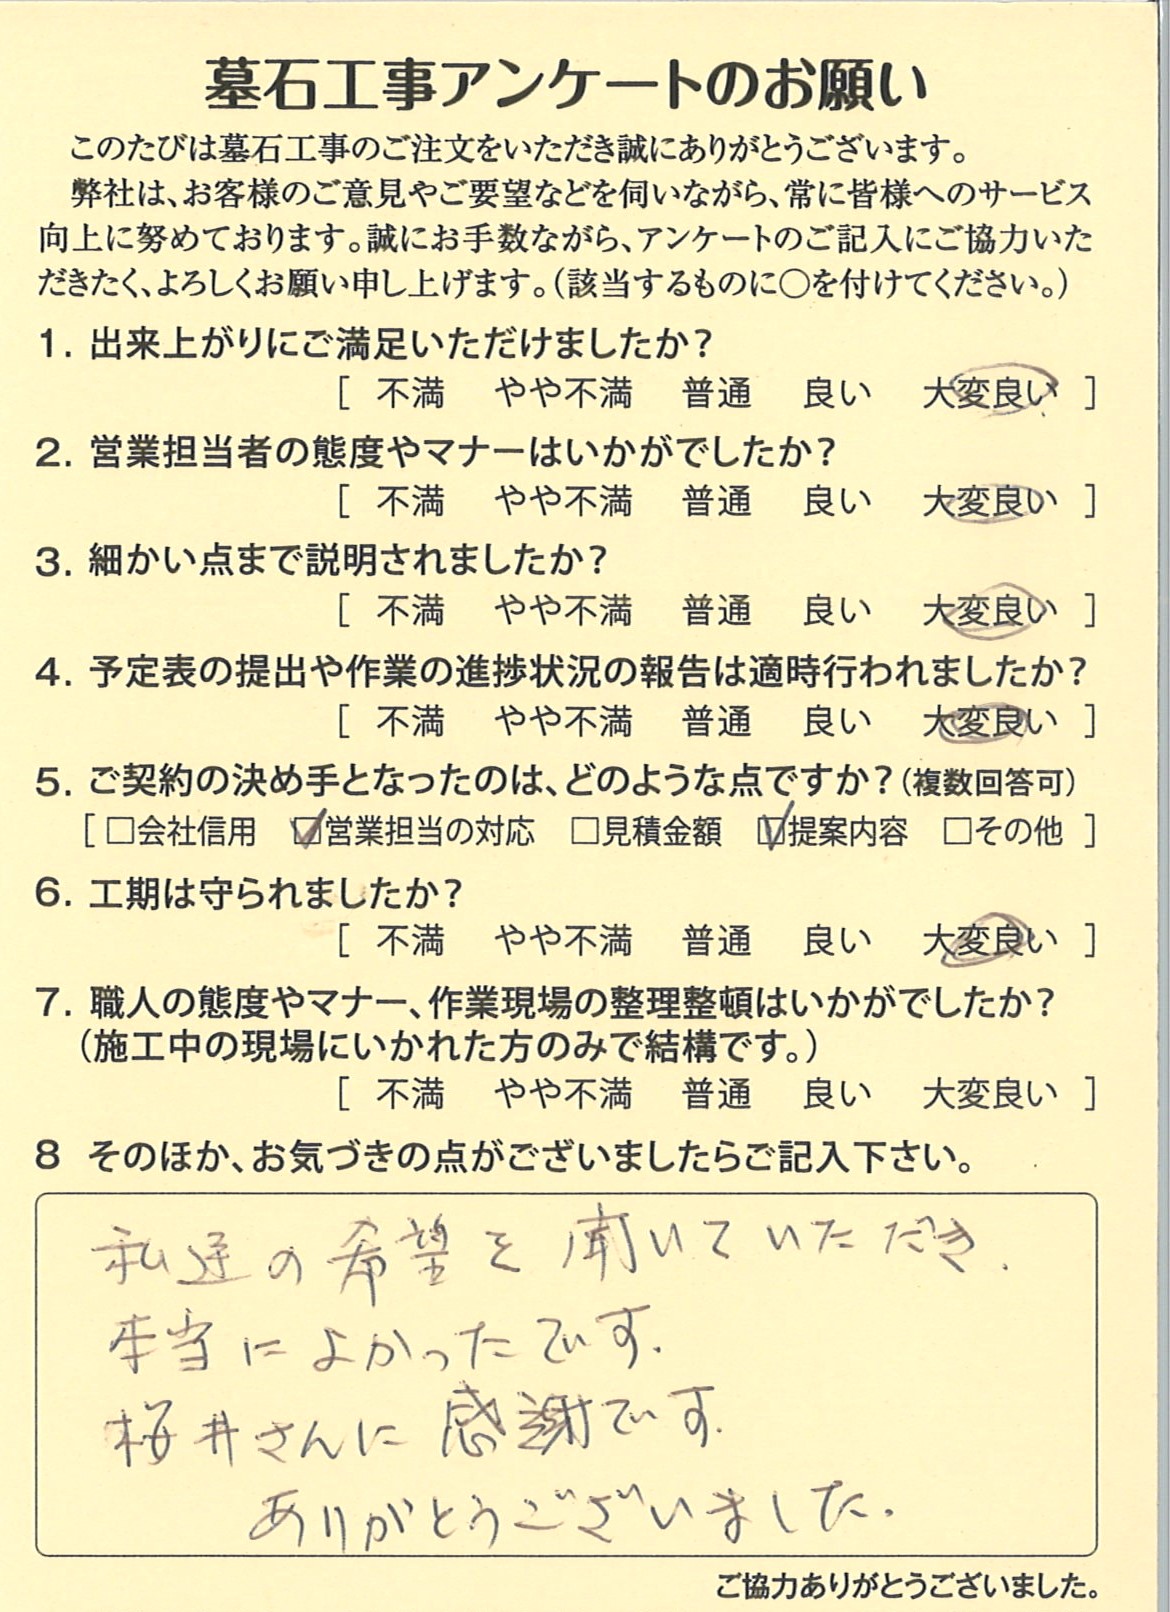 墓石工事アンケートのお願い
このたびは墓石工事のご注文をいただき誠にありがとうございます。
弊社は、お客様のご意見やご要望などを伺いながら、常に皆様へのサービス
向上に努めております。誠にお手数ながら、アンケートのご記入にご協力いた
だきたく、よろしくお願い申し上げます。(該当するものに○を付けてください。)
1. 出来上がりにご満足いただけましたか?
[ 不満 やや不満 普通 良い 大変良い ]
2. 営業担当者の態度やマナーはいかがでしたか?
[ 不満 やや不満 普通 良い 大変良い ]
3. 細かい点まで説明されましたか?
[ 不満 やや不満 普通 良い 大変良い ]
4. 予定表の提出や作業の進捗状況の報告は適時行われましたか?
[ 不満 やや不満 普通 良い 大変良い ]
5. ご契約の決め手となったのは、どのような点ですか?(複数回答可)
[ □会社信用 ☑営業担当の対応 □見積金額 ☑提案内容 □その他 ]
6. 工期は守られましたか?
[ 不満 やや不満 普通 良い 大変良い ]
7. 職人の態度やマナー、作業現場の整理整頓はいかがでしたか?
(施工中の現場にいかれた方のみで結構です。)
[ 不満 やや不満 普通 良い 大変良い ]
8 そのほか、お気づきの点がございましたらご記入下さい。
私達の希望を聞いていただき.
本当によかったです.
桜井さんに感謝です.
ありがとうございました.
ご協力ありがとうございました。